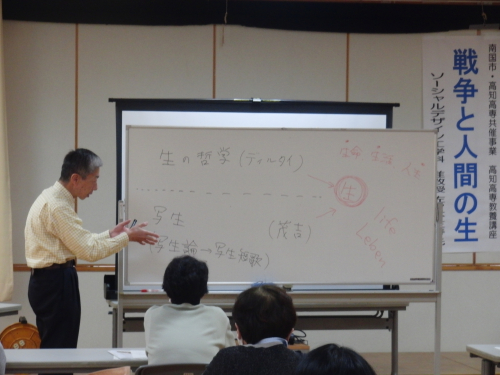 生の哲学(ディルタイ)
写生
(写生論→写生短歌)
(茂吉)
生命 生活 人生
生
life
Leben
南国市・高知高専共催事業 高知高専教養講座
戦争と人間の生
ソーシャルデザイン工学科